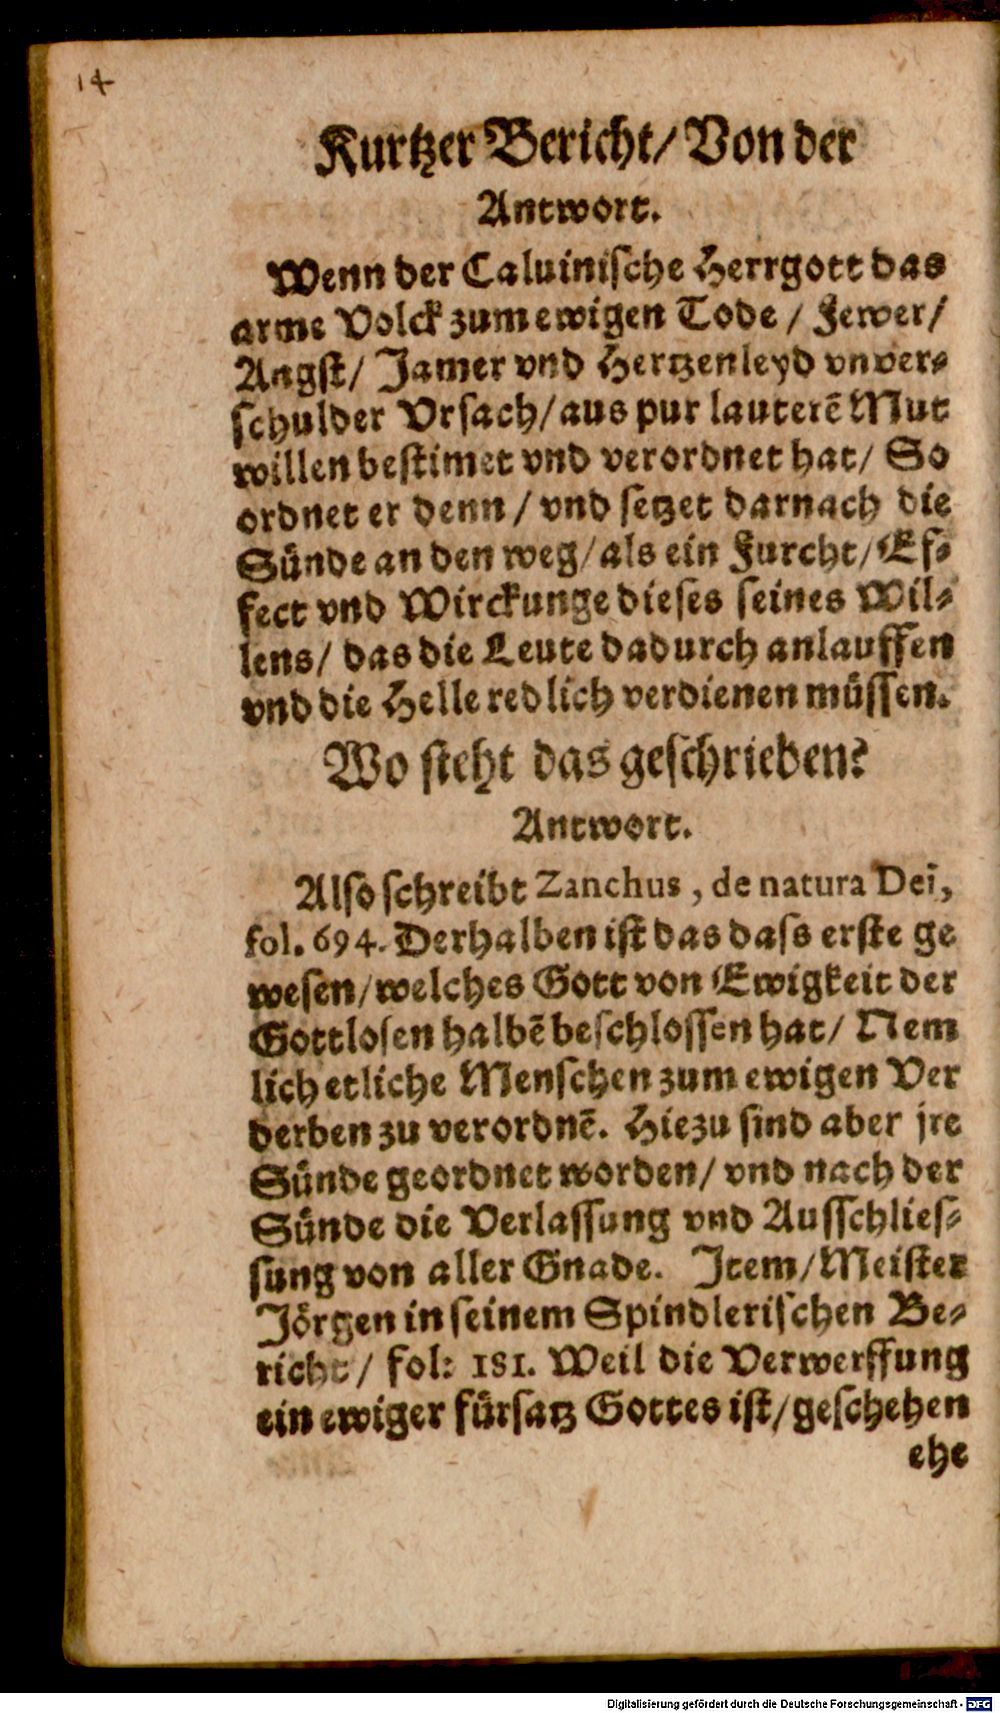 14
Kurtzer Bericht/ Von der
Antwort.
Wenn der Caluinische Herrgott das
arme Volck zum ewigen Tode / Fewer/
Angst/ Jamer vnd Hertzenleyd vnver⸗
schulder Vrsach/ aus pur lauterē Mut
willen bestimet vnd verordnet hat/ So
ordnet er denn / vnd setzet darnach die
Sünde an den weg/ als ein Furcht/ Ef⸗
fect vnd Wirckunge dieses seines Wil⸗
lens/ das die Leute dadurch anlauffen
vnd die Helle redlich verdienen müssen.
Wo steht das geschrieben?
Antwort.
Also schreibt Zanchus, de natura Dei,
fol. 694. Derhalben ist das dass erste ge
wesen/ welches Gott von Ewigkeit der
Gottlosen halbē beschlossen hat/ Nem
lich etliche Menschen zum ewigen Ver
derben zu verordnē. Hiezu sind aber jre
Sünde geordnet worden/ vnd nach der
Sünde die Verlassung vnd Ausschlies⸗
sung von aller Gnade. Item/ Meister
Jörgen in seinem Spindlerischen Be⸗
richt/ fol: 181. Weil die Verwerffung
ein ewiger fürsatz Gottes ist/ geschehen
ehe
Digitalisierung gefördert durch die Deutsche Forschungsgemeinschaft - DFG